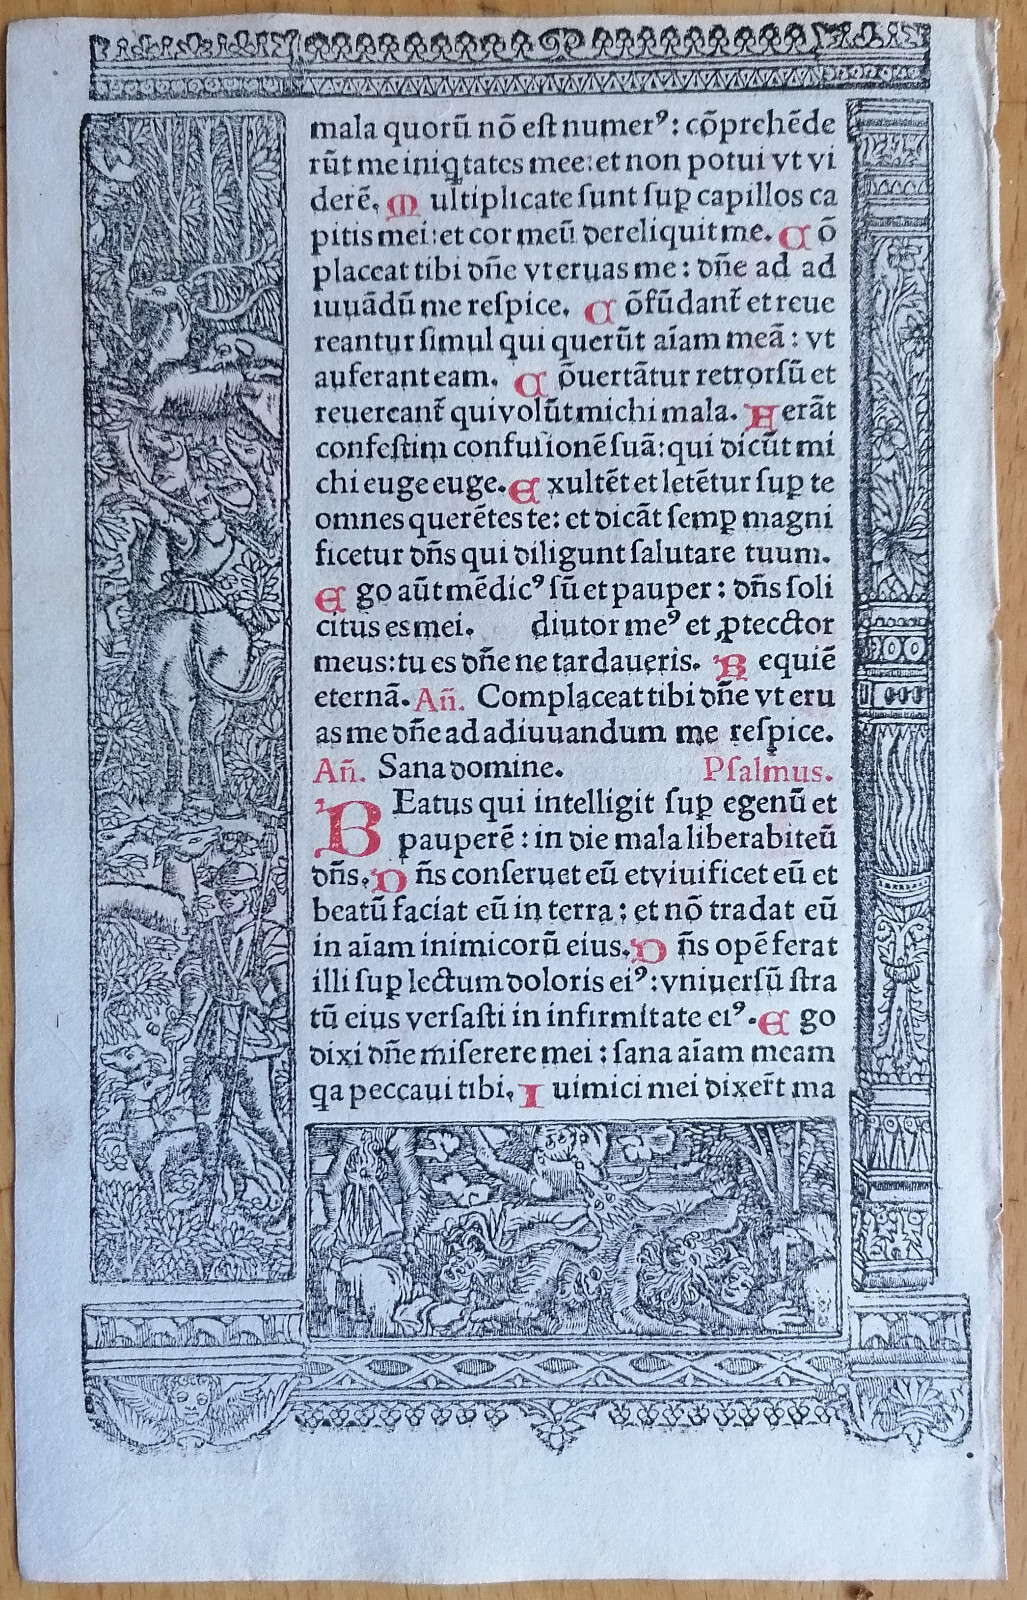 mala quorū nō eſt numerꝰ: cōprehēde
rūt me iniqtates mee: et non potui vt vi
derē. Multiplicate ſunt ſuꝑ capillos ca
pitis mei: et cor meū dereliquit me. Cō
placeat tibi dn̄e vt eruas me: dn̄e ad ad
iuuādū me reſpice. Cōfūdant̄ et reue
reantur ſimul qui querūt aīam meā: vt
auferant eam. Cōuertātur retrorſū et
reuereant̄ qui volūt michi mala. Herāt
confeſtim confuſionē ſuā: qui dicūt mi
chi euge euge. Exultēt et letētur ſuꝑ te
omnes querētes te: et dicāt ſemꝑ magni
ficetur dn̄s qui diligunt ſalutare tuum.
Ego aūt mēdicꝰ ſū et pauper: dn̄s ſoli
citus es mei. diutor meꝰ et ꝓtector
meus: tu es dn̄e ne tardaueris. Requiē
eternā. Añ. Complaceat tibi dn̄e vt eru
as me dn̄e ad adiuuandum me reſpice.
Añ. Sana domine. Pſalmus.
BEatus qui intelligit ſuꝑ egenū et
pauperē: in die mala liberabit eū
dn̄s. Dn̄s conſeruet eū et viuificet eū et
beatū faciat eū in terra: et nō tradat eū
in aīam inimicorū eius. Dn̄s opē ferat
illi ſuꝑ lectum doloris eiꝰ: vniuerſū ſtra
tū eius verſaſti in infirmitate eiꝰ. Ego
dixi dn̄e miſerere mei: ſana aīam meam
qa peccaui tibi. Iuimici mei dixer̄t ma